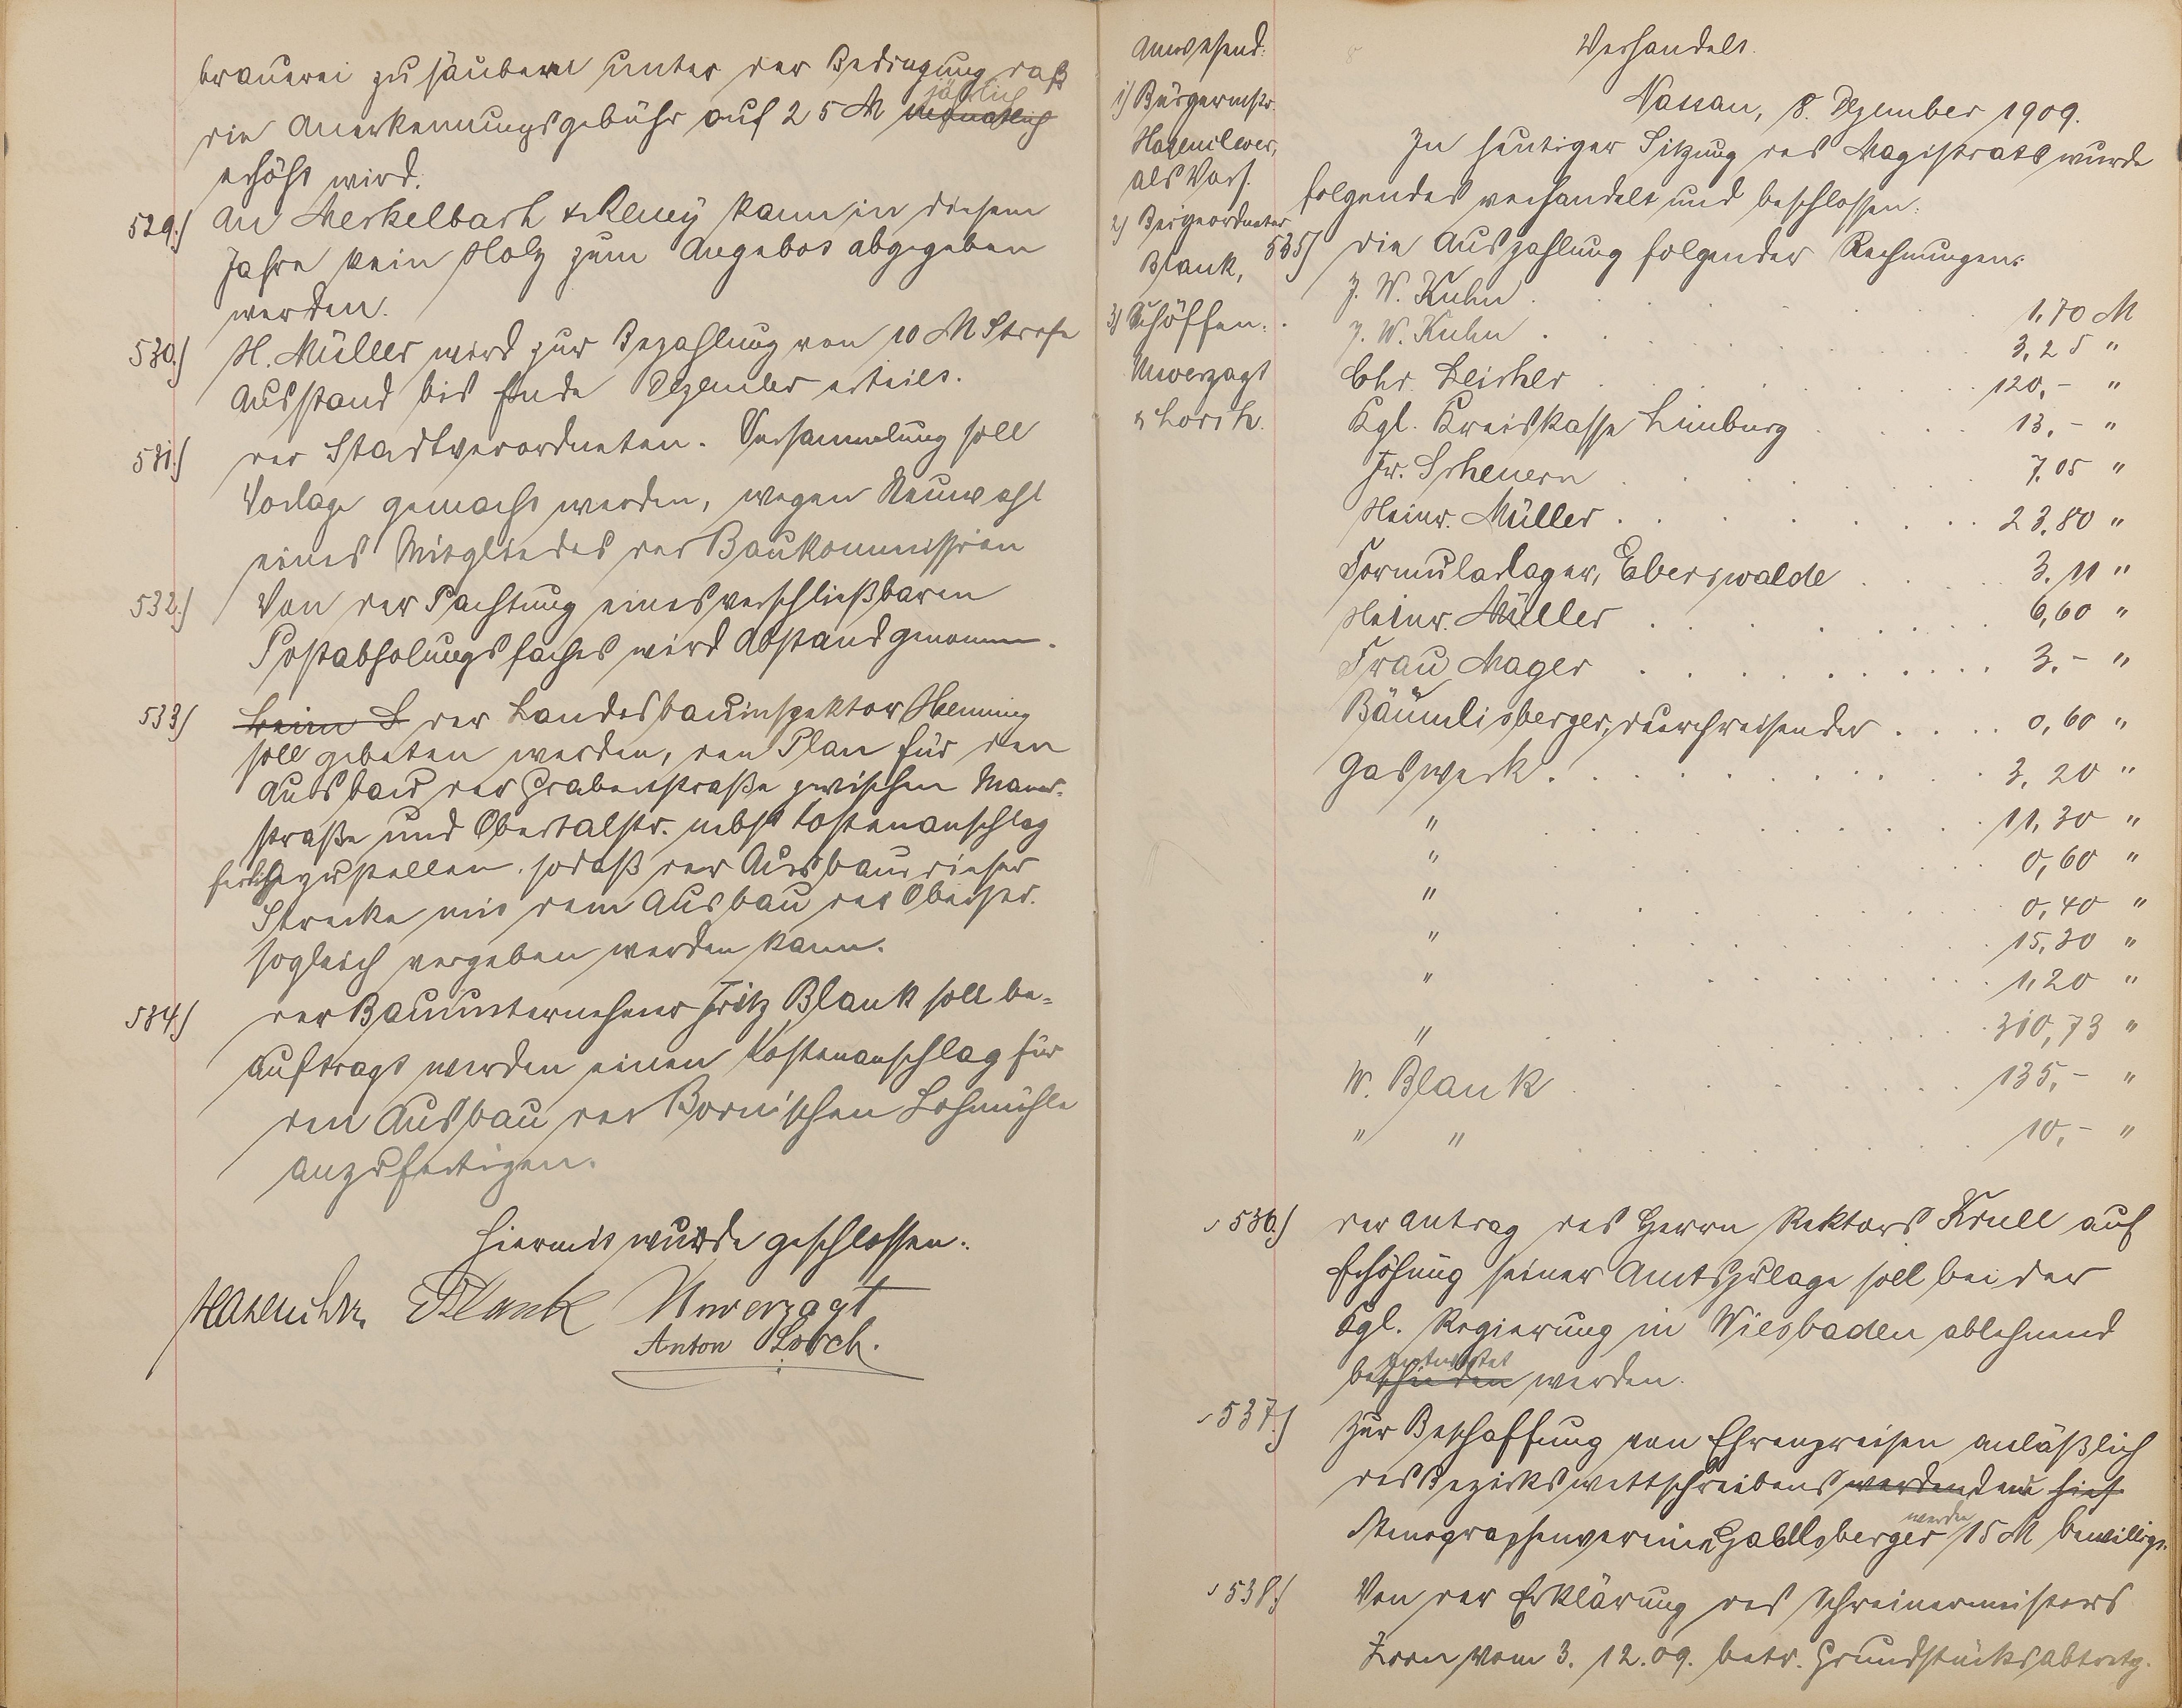 brauerei zu säubern unter der Bedingung daß
jährlich
die Anerkennungsgebühr auf 25 M monatlich
erhöht wird.
529.) An Merkelbach & Remy kann in diesem
Jahre kein Holz zum Angebot abgegeben
werden.
530.) H. Müller wird zur Bezahlung von 10 M Strafe
Ausstand bis Ende Dezember erteilt.
531.) der Stadtverordneten-Versammlung soll
Vorlage gemacht werden, wegen Neuwahl
eines Mitgliedes der Baukommission
532.) Von der Pachtung eines verschließbaren
Postabholungsfaches wird Abstand genommen.
533) beim L der Landesbauinspektor Henning
soll gebeten werden, den Plan für den
Ausbau der Grabenstraße zwischen Mauer-
straße und Obertalstr. nebst Kostenanschlag
fertigzustellen, sodaß der Ausbau dieser
Strecke mit dem Ausbau der Oberstr.
sogleich vergeben werden kann.
534.) der Bauunternehmer Fritz Blank soll be-
auftragt werden einen Kostenanschlag für
den Ausbau der Bornischen Lohmühle
anzufertigen.
Hiermit wurde geschlossen.
Hasenclever, Blank Unverzagt
Anton Lorch.
Anwesend:
1) Bürgermstr.
Hasenclever,
als Vors.
2) Beigeordneter
Blank,
3) Schöffen:
Unverzagt
& Lorch.
Verhandelt.
Nassau, 8. Dezember 1909.
In heutiger Sitzung des Magistrats wurde
folgendes verhandelt und beschlossen:
535) die Auszahlung folgender Rechnungen:
J. W. Kuhn . . . 1,70 M
J. W. Kuhn . . . 3,25 "
Chr. Leicher . . . 120,- "
Kgl. Kreiskasse Limburg . . . 13,- "
Fr. Scheuern . . . 7,05 "
Heinr. Müller . . . 23,80 "
Formularlager, Eberswalde . . . 3,11 "
Heinr. Müller . . . 6,60 "
Frau Mager . . . 3,- "
Bäumlisberger, durchreisender . . . 0,60 "
Gaswerk . . . 3,20 "
" . . . 11,30 "
" . . . 0,60 "
" . . . 0,40 "
" . . . 15,30 "
" . . . 1,20 "
" . . . 310,73 "
W. Blank . . . 135,- "
" " . . . 10,- "
536.) der Antrag des Herrn Rektors Krull auf
Erhöhung seiner Amtszulage soll bei der
Kgl. Regierung in Wiesbaden ablehnend
beschieden werden.
537.) Zur Beschaffung von Ehrenpreisen anläßlich
des Bezirkswettschreibens werden dem hies.
werden
Stenographenverein Gabelsberger 15 M bewilligt.
538.) Von der Erklärung des Schreinermeisters
Zorn vom 3. 12. 09. betr. Grundstücksabtretg.